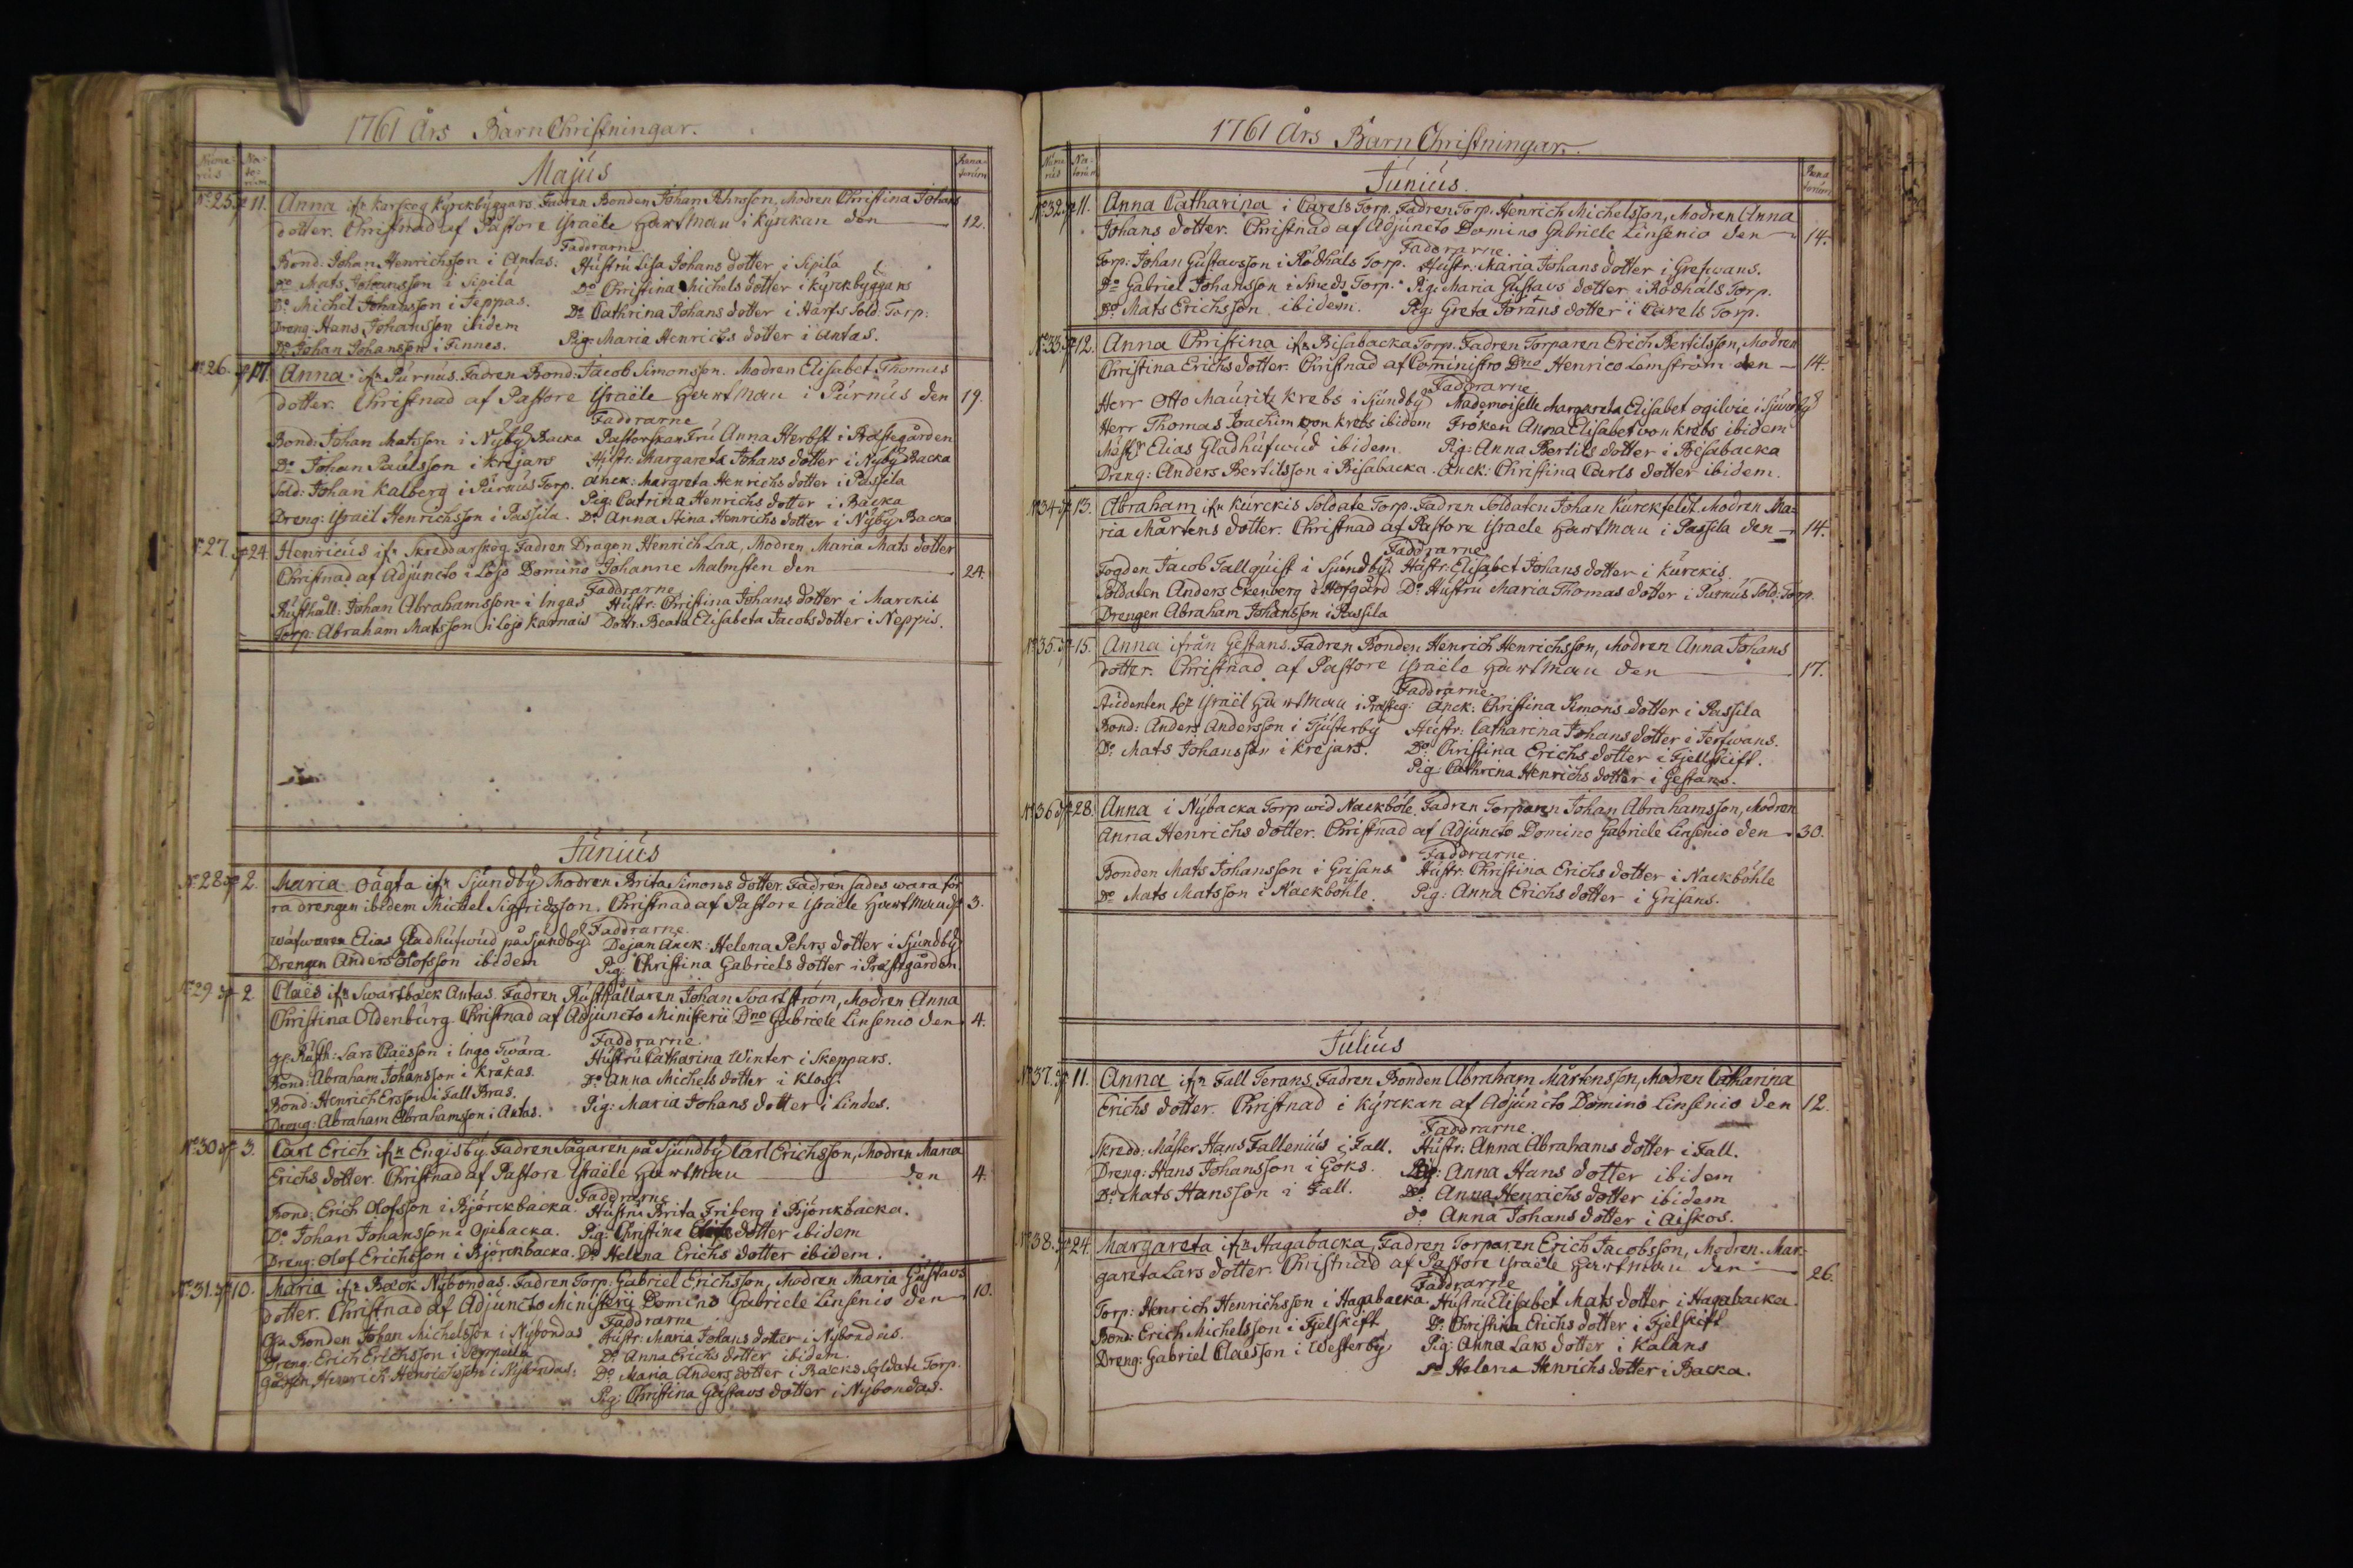 1761 Års BarnChristningar.
Nume-rus Na-to-rum Rena-torum
Majus
No 25. 11. Anna ifn Karskog Kyrckbyggars. Fadren Bonden Johan Pehrsson, Modren Christina Johans
dotter. Christnad af Pastore Israële Hartman i Kyrckan den 12.
Faddrarne
Bond: Johan Henrichsson i Antas. Hustru Lisa Johans dotter i Sipilä
Do Mats Johansson i Sipilä Do Christina Michels dotter i Kyrckbyggars
Do Michel Johansson i Seppas. Do Cathrina Johans dotter i Harfs Sold: Torp.
Dreng: Hans Johansson ibidem Pig: Maria Henrichs dotter i Antas.
Do Johan Johansson i Finnes.
No 26. 17. Anna ifn Purnus. Fadren Bond: Jacob Simonsson. Modren Elisabet Thomas
dotter. Christnad af Pastore Israële Hartman i Purnus den 19.
Faddrarne
Bond: Johan Matsson i Nyby Backa Pastorskan Fru Anna Herbst i Prästegården
Do Johan Paulsson i Krejars Hustr: Margareta Johans dotter i Nyby Backa
Sold: Johan Kalberg i Purnus Torp. Anck: Margreta Henrichs dotter i Passila
Pig: Catrina Henrichs dotter i Backa
Dreng: Israil Henrichsson i Passila. Do Anna Stina Henrichs dotter i Nyby Backa
No 27. 24 Henricus ifn Skreddarskog. Fadren Dragon Henrich Lax, Modren Maria Mats dotter
Christnad af Adjuncto i Lojo Domino Johanne Malmsten den 24.
Faddrarne
Rusthåll: Johan Abrahamsson i Ingas Hustr: Christina Johans dotter i Marckis
Torp: Abraham Matsson i Lojo Karnais Dottr. Beata Elisabeta Jacobs dotter i Neppis.
Junius
No 28 2. Maria oägta ifn Sjundby Modren Brita Simons dotter. Fadren sades wara för
ra drengen ibidem Michel Sigfridsson. Christnad af Pastore Israële Hartman 3.
Faddrarne.
wäfwaren Elias Gladhufwud på Sjundby Dejan Anck: Helena Pehrs dotter i Sjundby
Drengen Anders Olofsson ibidem Pig: Christina Gabriels dotter i Prästgården.
No 29 2. Claës ifn Swartbäck Antas. Fadren Rusthållaren Johan Svartström, Modren Anna
Christina Oldenburg. Christnad af Adjuncto Ministerii Dno Gabriele Linsenio den 4.
Faddrarne.
Rusth: Lars Claësson i Ingo Twära. Hustru Catharina Winter i Skeppars.
Bond: Abraham Johansson i Kråkas. Do Anna Michels dotter i Kloss.
Bond: Henrich Ersson i Fall Bras. Pig: Maria Johans dotter i Lindes.
Dreng: Abraham Abrahamsson i Antas.
No 30 3. Carl Erich ifn Engisby. Fadren Sågaren på Sjundby Carl Erichsson, Modren Maria
Erichs dotter. Christnad af Pastore Israële Hartman den 4.
Faddrarne
Bond: Erich Olofsson i Björckbacka. Hustru Brita Friberg i Björckbacka.
Do Johan Johansson i Opibacka. Pig: Christina dotter ibidem
Dreng: Olof Erichsson i Björckbacka. Do Helena Erichs dotter ibidem.
No 31. 10. Maria ifn Bäck Nybondas. Fadren Torp: Gabriel Erichsson, Modren Maria Gustavs
dotter. Christnad af Adjuncto Ministerii Domino Gabriele Linsenio den 10.
Faddrarne
Bonden Johan Michelsson i Nybondas Hustr: Maria Johans dotter i Nybondas.
Dreng: Erich Erichsson i Do Anna Erichs dotter ibidem.
Gossen Henrich Henrichsson i Nybondas. Do Maria Anders dotter i Bäcks Soldate Torp.
Pig: Christina Gustavs dotter i Nybondas.
1761 Års BarnChristningar.
Nume-rus Na-torum Rena-torum
Junius.
No 32. 11. Anna Catharina i Carels Torp. Fadren Torp. Henrich Michelsson, Modren Anna
Johans dotter. Christnad af Adjuncto Domino Gabriele Linsenio den 14.
Faddrarne.
Torp: Johan Gustavsson i Rödhals Torp. Hustr: Maria Johans dotter i Grefwans.
Do Gabriel Johansson i Smeds Torp. Pig: Maria Gustavs dotter i Rödhals Torp.
Do Mats Erichsson ibidem. Pig: Greta Jörans dotter i Carels Torp.
No 33. 12. Anna Christina ifn Bisabacka Torp. Fadren Torparen Erich Bertilsson, Modren
Christina Erichs dotter. Christnad af Cominstro Dno Henrico Lemström den 14.
Faddrarne
Herr Otto Mauritz Krebs i Sjundby Mademoiselle Margareta Elisabet Ogilvie i Sjundby
Herr Thomas Joachim von Krebs ibidem Fröken Anna Elisabet von Krebs ibidem
Mäst: Elias Gladhufwud ibidem. Pig: Anna Bertils dotter i Bisabacka
Dreng: Anders Bertilsson i Bisabacka. Anck: Christina Carls dotter ibidem.
No 34 13. Abraham ifn Kurckis Soldate Torp. Fadren Soldaten Johan Kurckfeldt. Modren Ma-
ria Mårtens dotter. Christnad af Pastore Israele Hartman i Passila den 14.
Faddrarne
Fogden Jacob Tallquist i Sjundby. Hustr: Elisabet Johans dotter i Kurckis.
Soldaten Anders Ekenberg i Hofgård Do Hustru Maria Thomas dotter i Purnus Sold: Torp.
Drengen Abraham Johansson i Passila
No 35. 15. Anna ifrån Gestans. Fadren Bonden Henrich Henrichsson, Modren Anna Johans
dotter. Christnad af Pastore Israële Hartman den 17.
Faddrarne.
Studenten Hr Israël Hartman i Prästeg: Anck: Christina Simons dotter i Passila
Bond: Anders Andersson i Tjusterby Hustr: Catharina Johans dotter i Terfwans.
Do Mats Johansson i Krejars. Do Christina Erichs dotter i Fjellskift.
Pig: Cathrina Henrichs dotter i Gestans.
No 36 28. Anna i Nybacka Torp wid Nackböle. Fadren Torparen Johan Abrahamsson, Modren
Anna Henrichs dotter. Christnad af Adjuncto Domino Gabriele Linsenio den 30.
Faddrarne.
Bonden Mats Johansson i Grisans Hustr: Christina Erichs dotter i Nackböhle
Do Mats Matsson i Nackböhle. Pig: Anna Erichs dotter i Grisans.
Julius
No 37. 11. Anna ifn Fall Terans. Fadren Bonden Abraham Mårtensson, Modren Catharina
Erichs dotter. Christnad i Kyrckan af Adjuncto Domino Linsenio den 12.
Faddrarne.
Skredd: Mäster Hans Fallenius i Fall. Hustr: Anna Abrahams dotter i Fall.
Dreng: Hans Johansson i Göks. Pig: Anna Hans dotter ibidem
Do Mats Hansson i Fall. Do Anna Henrichs dotter ibidem
do Anna Johans dotter i Aiskos.
No 38. 24. Margareta ifn Hagabacka, Fadren Torparen Erich Jacobsson, Modren Mar-
gareta Lars dotter. Christnad af Pastore Israële Hartman den 26.
Faddrarne
Torp: Henrich Henrichsson i Hagabacka. Hustru Elisabet Mats dotter i Hagabacka.
Bond: Erich Michelsson i Fjelskift Do Christina Erichs dotter i Fjelskift
Dreng: Gabriel Claësson i Westerby Pig: Anna Lars dotter i Kalans
Do Helena Henrichs dotter i Backa.